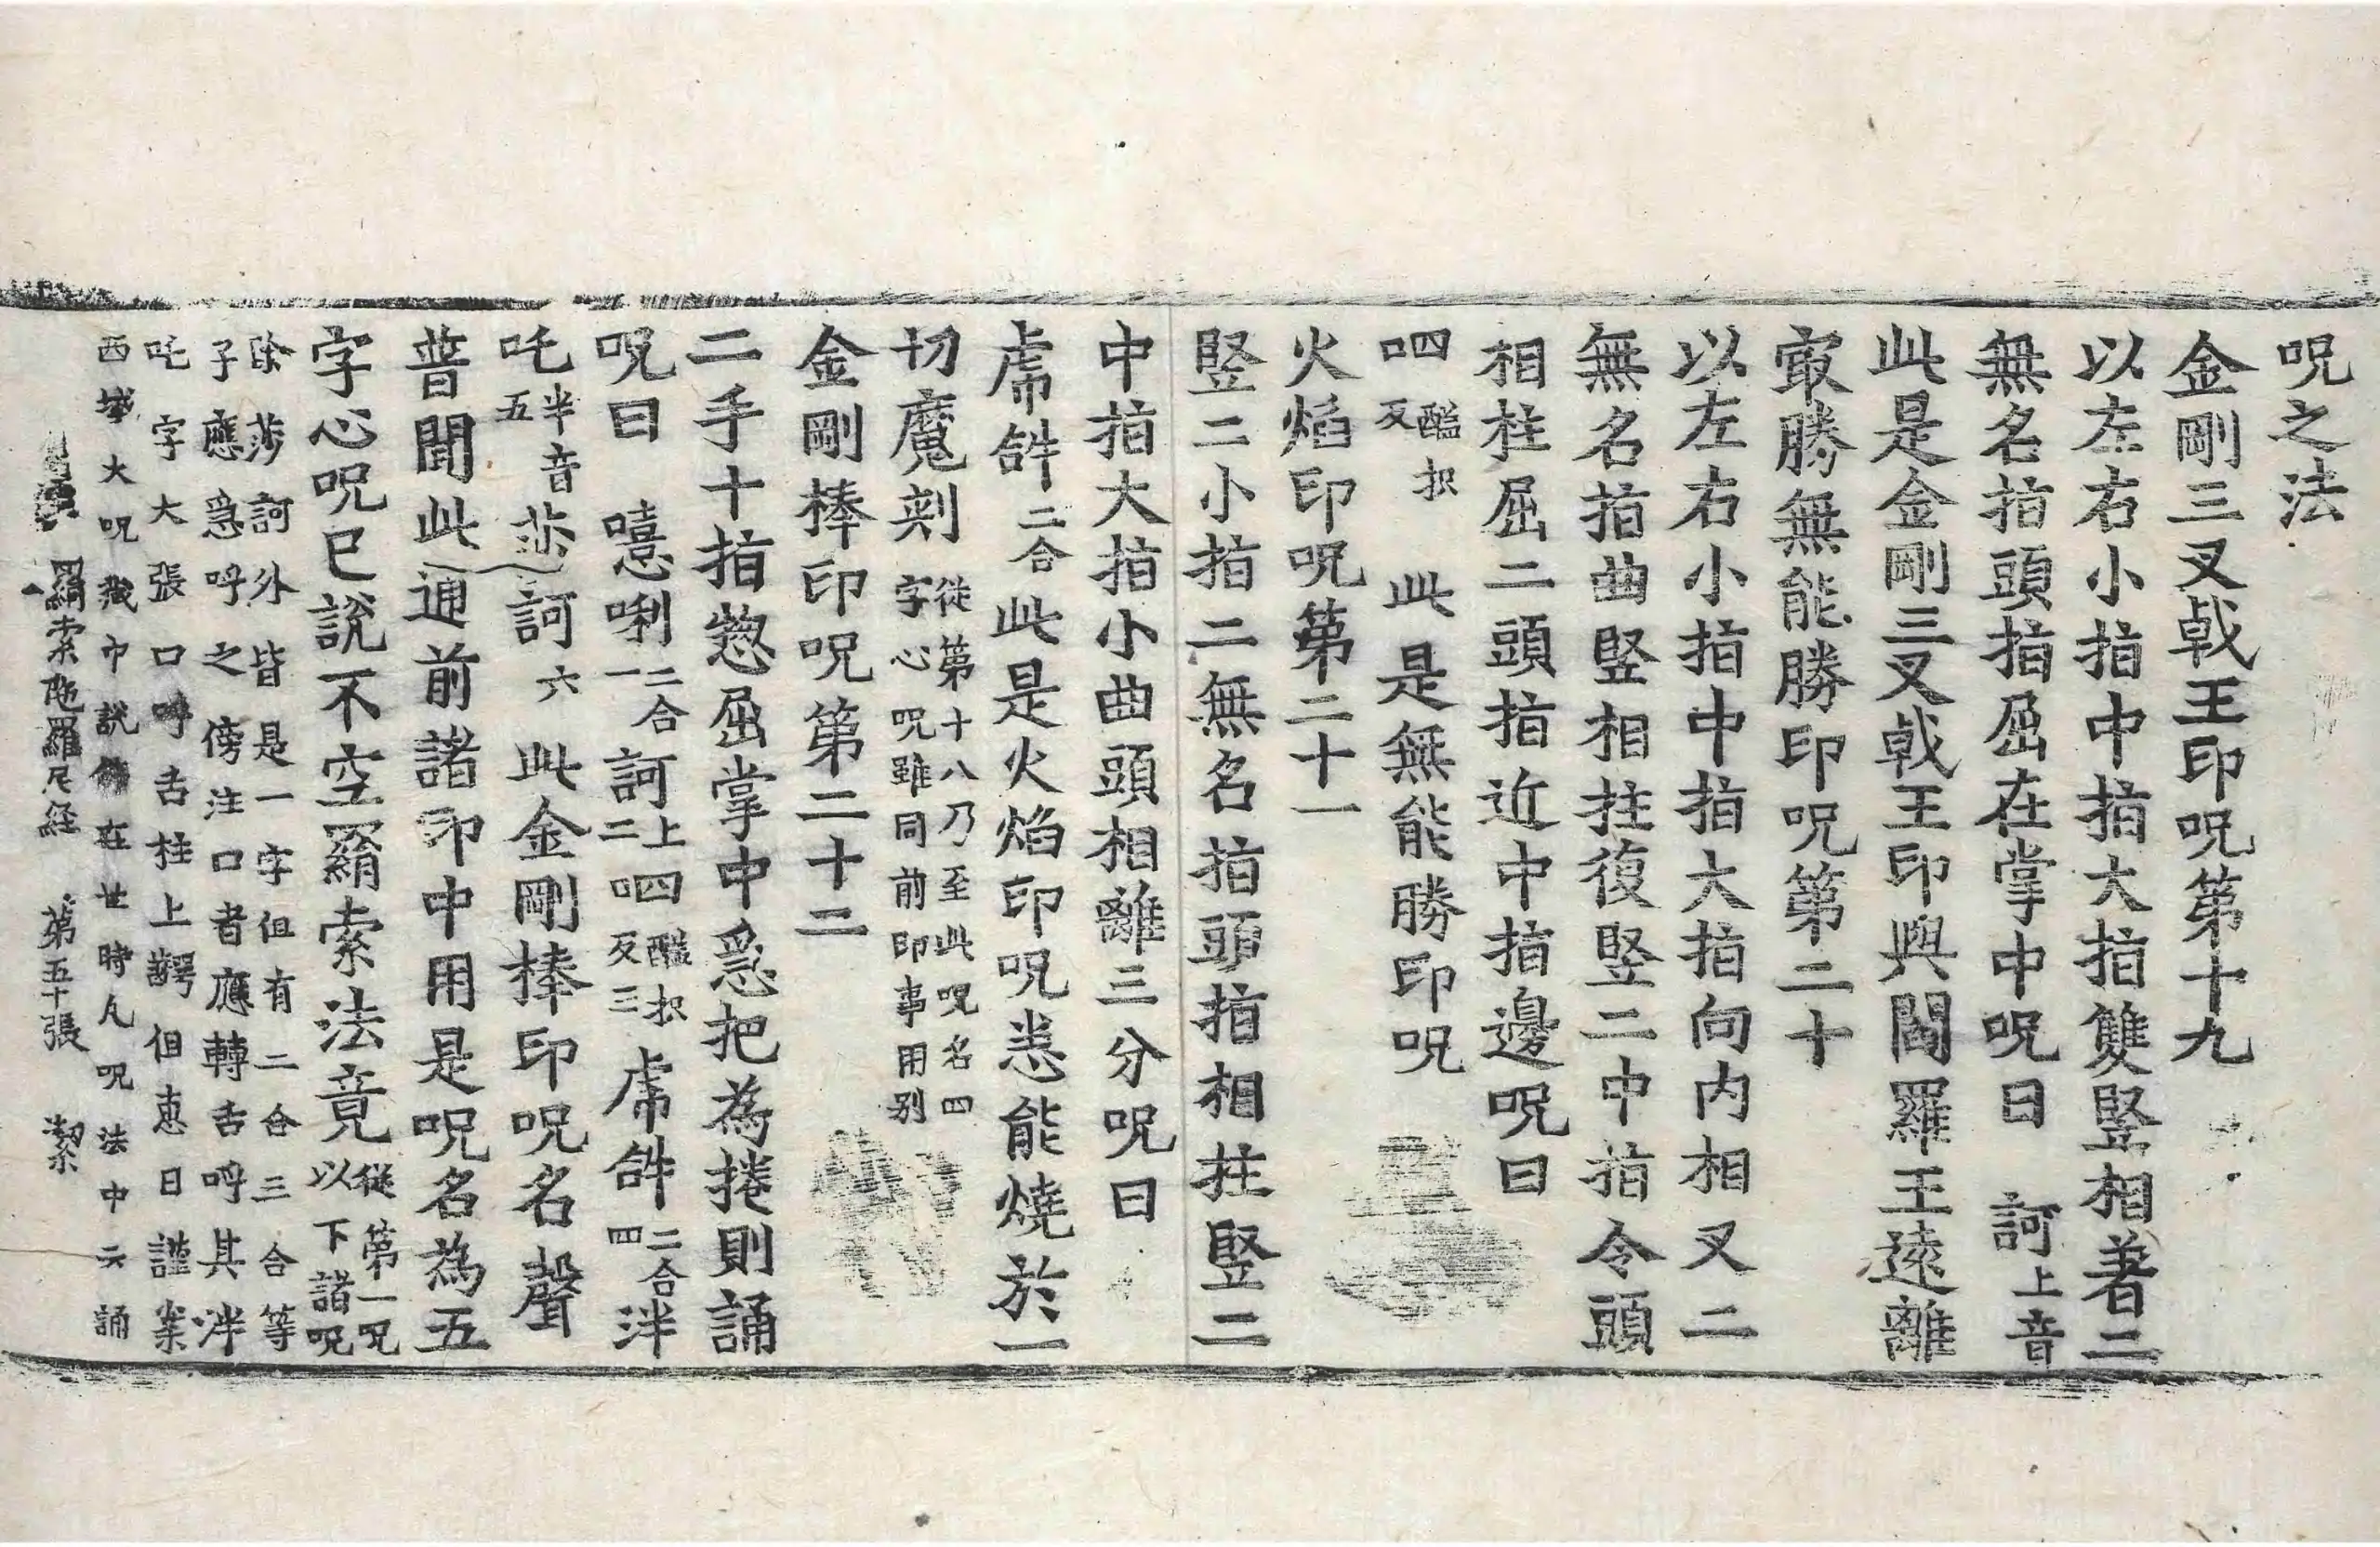 呪之法
金剛三叉戟王印呪第十九
以左右小指中指大指雙竪相著二
無名指頭指屈在掌中呪曰　訶上音
此是金剛三叉戟王印與閻羅王遠離
㝡勝無能勝印呪第二十
以左右小指中指大指向内相叉二
無名指曲竪相拄復竪二中指令頭
相柱屈二頭指近中指邊呪曰
呬醯枳反　此是無能勝印呪
火焰印呪第二十一
竪二小指二無名指頭指相拄竪二
中指大指小曲頭相離三分呪曰
虎𤙖二合此是火焰印呪悉能燒於一
切魔刹　從第十八乃至此呪名四字心呪雖同前印事用别
金剛棒印呪第二十二
二手十指惣屈掌中急把為捲則誦
呪曰　嘻唎二合一訶上二呬醯枳反三虎𤙖二合四泮
吒半音五莎訶六　此金剛棒印呪名聲
普聞此通前諸印中用是呪名為五
字心呪已說不空羂索法竟從第一呪以下諸呪
除莎訶外皆是一字但有二合三合等
子應急呼之傍注口者應轉舌呼其泮
吒字大張口呼舌柱上齶但惠日謹案
西域大呪藏中說佛在世時凡呪法中云誦
羂索陁羅尼経　第五十張　潔